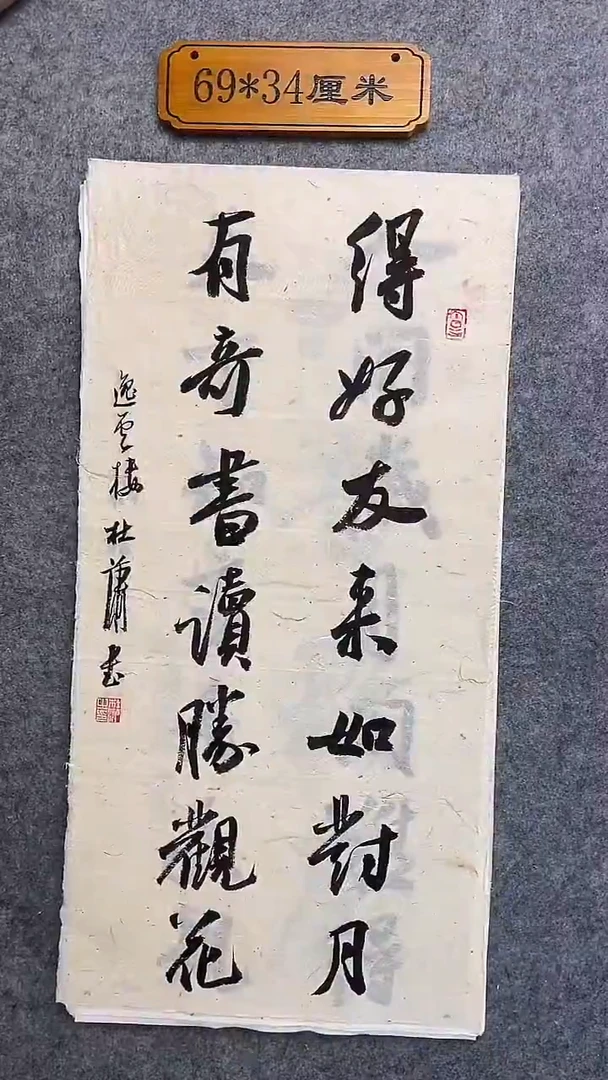 69*34厘米
得好友来如對月
有奇書讀勝觀花
逸雲楼杜蕭书